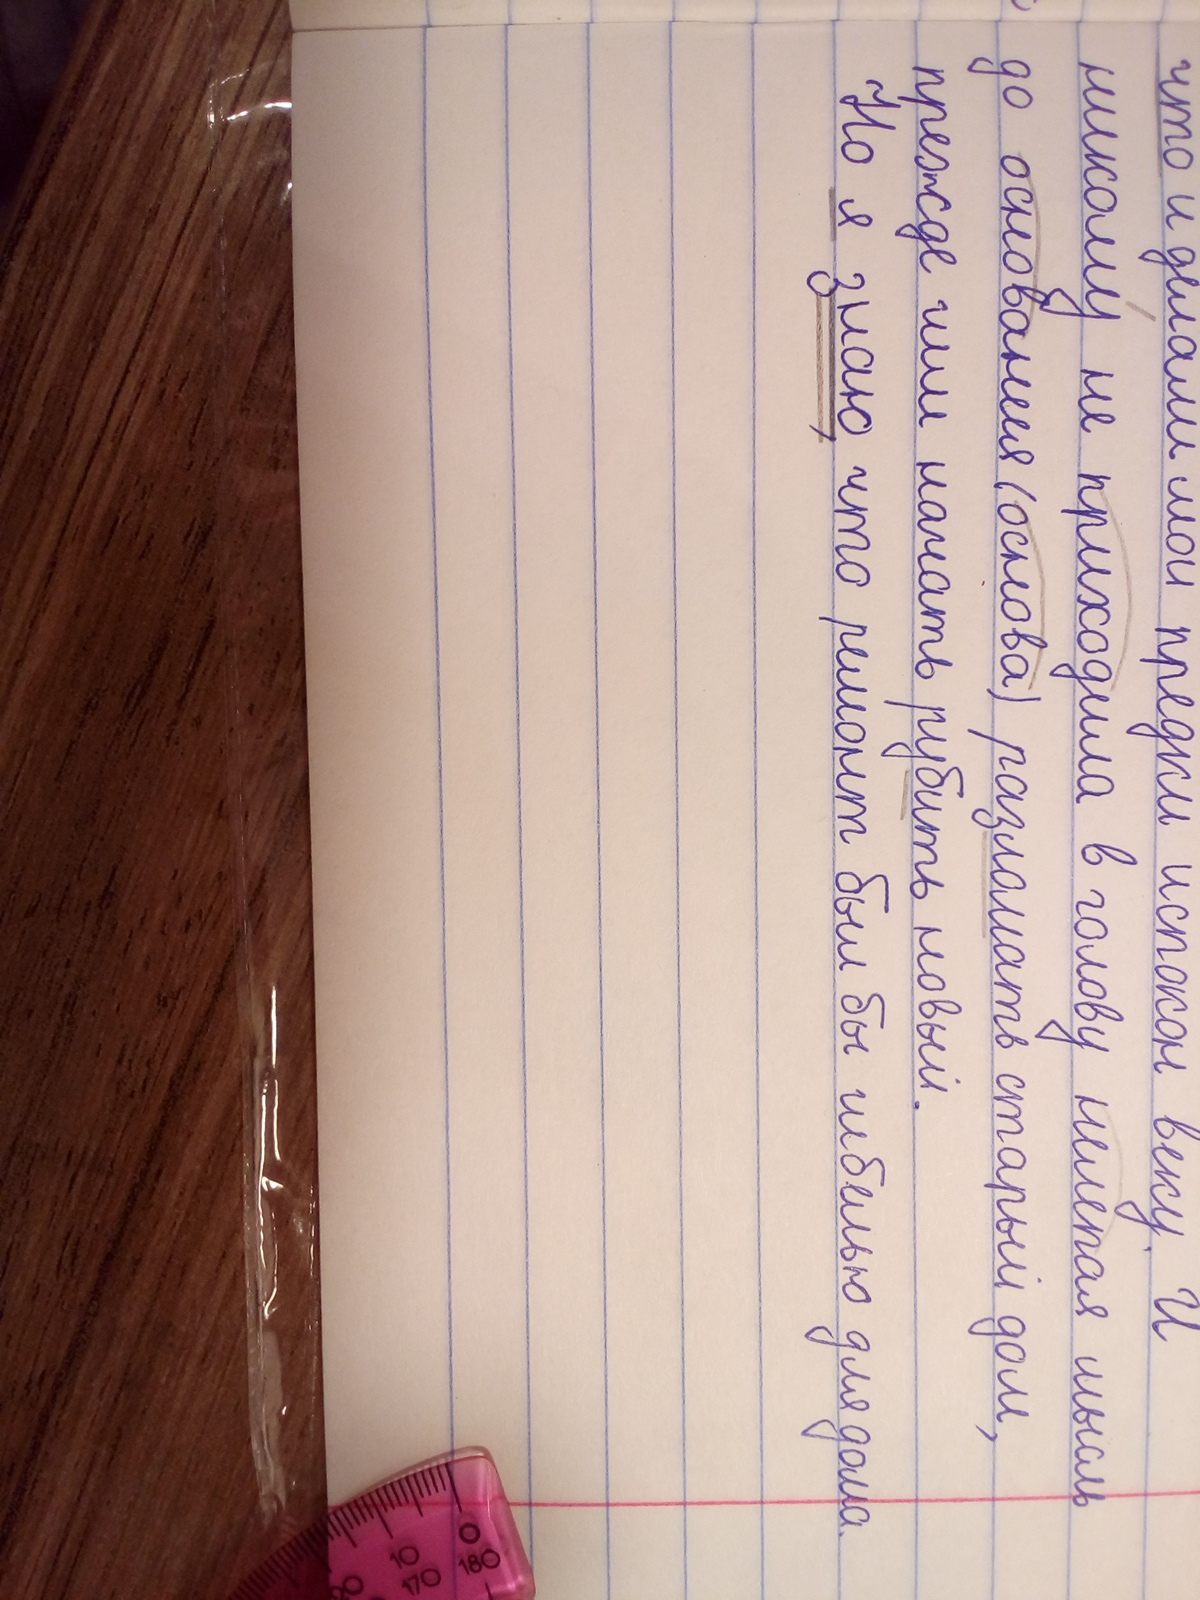 что и делали мои предки испокон веку. И
никому не приходила в голову нелепая мысль
до основания (основа) разломать старый дом,
прежде чем начать рубить новый.
Но я знаю, что ремонт был бы гибелью для дома.
0
10
180
170